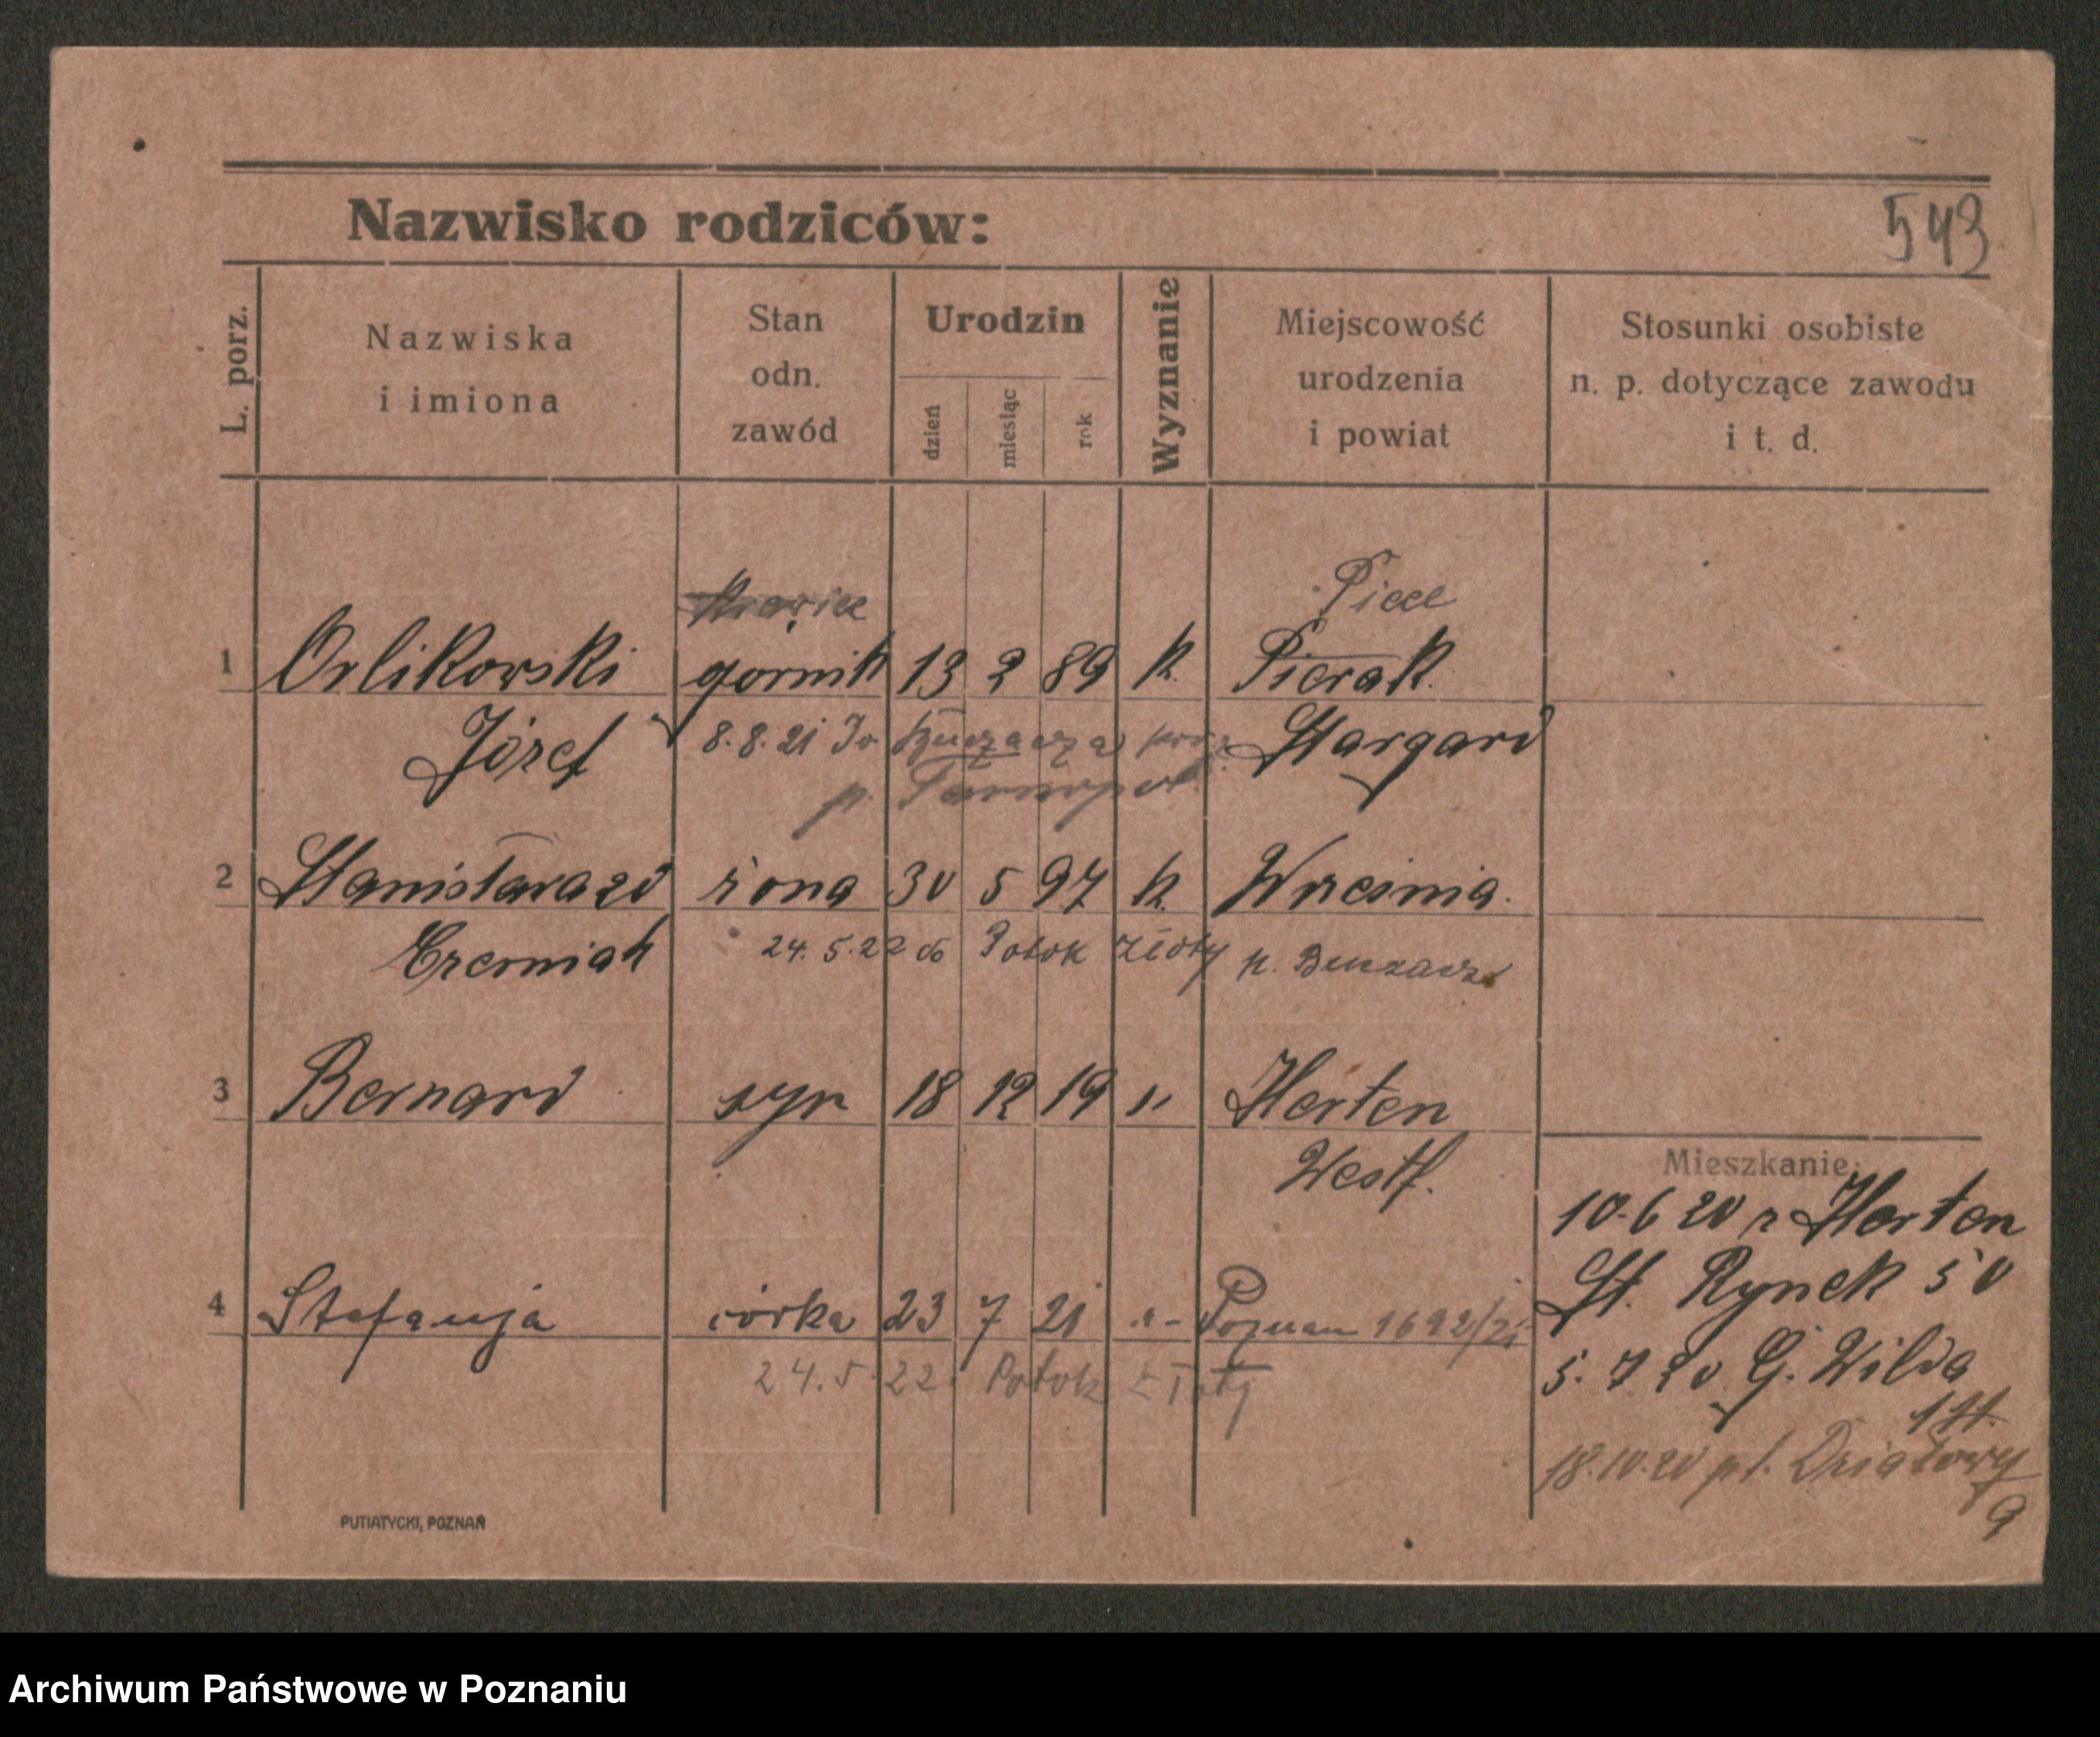 Nazwisko rodziców:
543
L. porz.
Nazwiska
i imiona
Stan
odn.
zawód
Urodzin
dzień
miesiąc
rok
Wyznanie
Miejscowość
urodzenia
i powiat
Stosunki osobiste
n. p. dotyczące zawodu
i t. d.
Piece
1 Orlikowski górnik 13 2 89 k. Pierak
Józef 8.8.21 Do Stargard
p. Tarnopol
2 Stanisława zd żona 30 5 97 k. Września.
Czerniak 24.5.22 do Potok Złoty p. Buczacz
3 Bernard syn 18 12 19 " Herten
Westf.
Mieszkanie:
10.6 20 z Herten
St. Rynek 50
4 Stefanja córka 23 7 21 "- Poznan 1692/21
24.5.22. Potok Złoty
5.7 20 G. Wilda
18.10.20 pl. Działowy
9
PUTIATYCKI, POZNAŃ
Archiwum Państwowe w Poznaniu